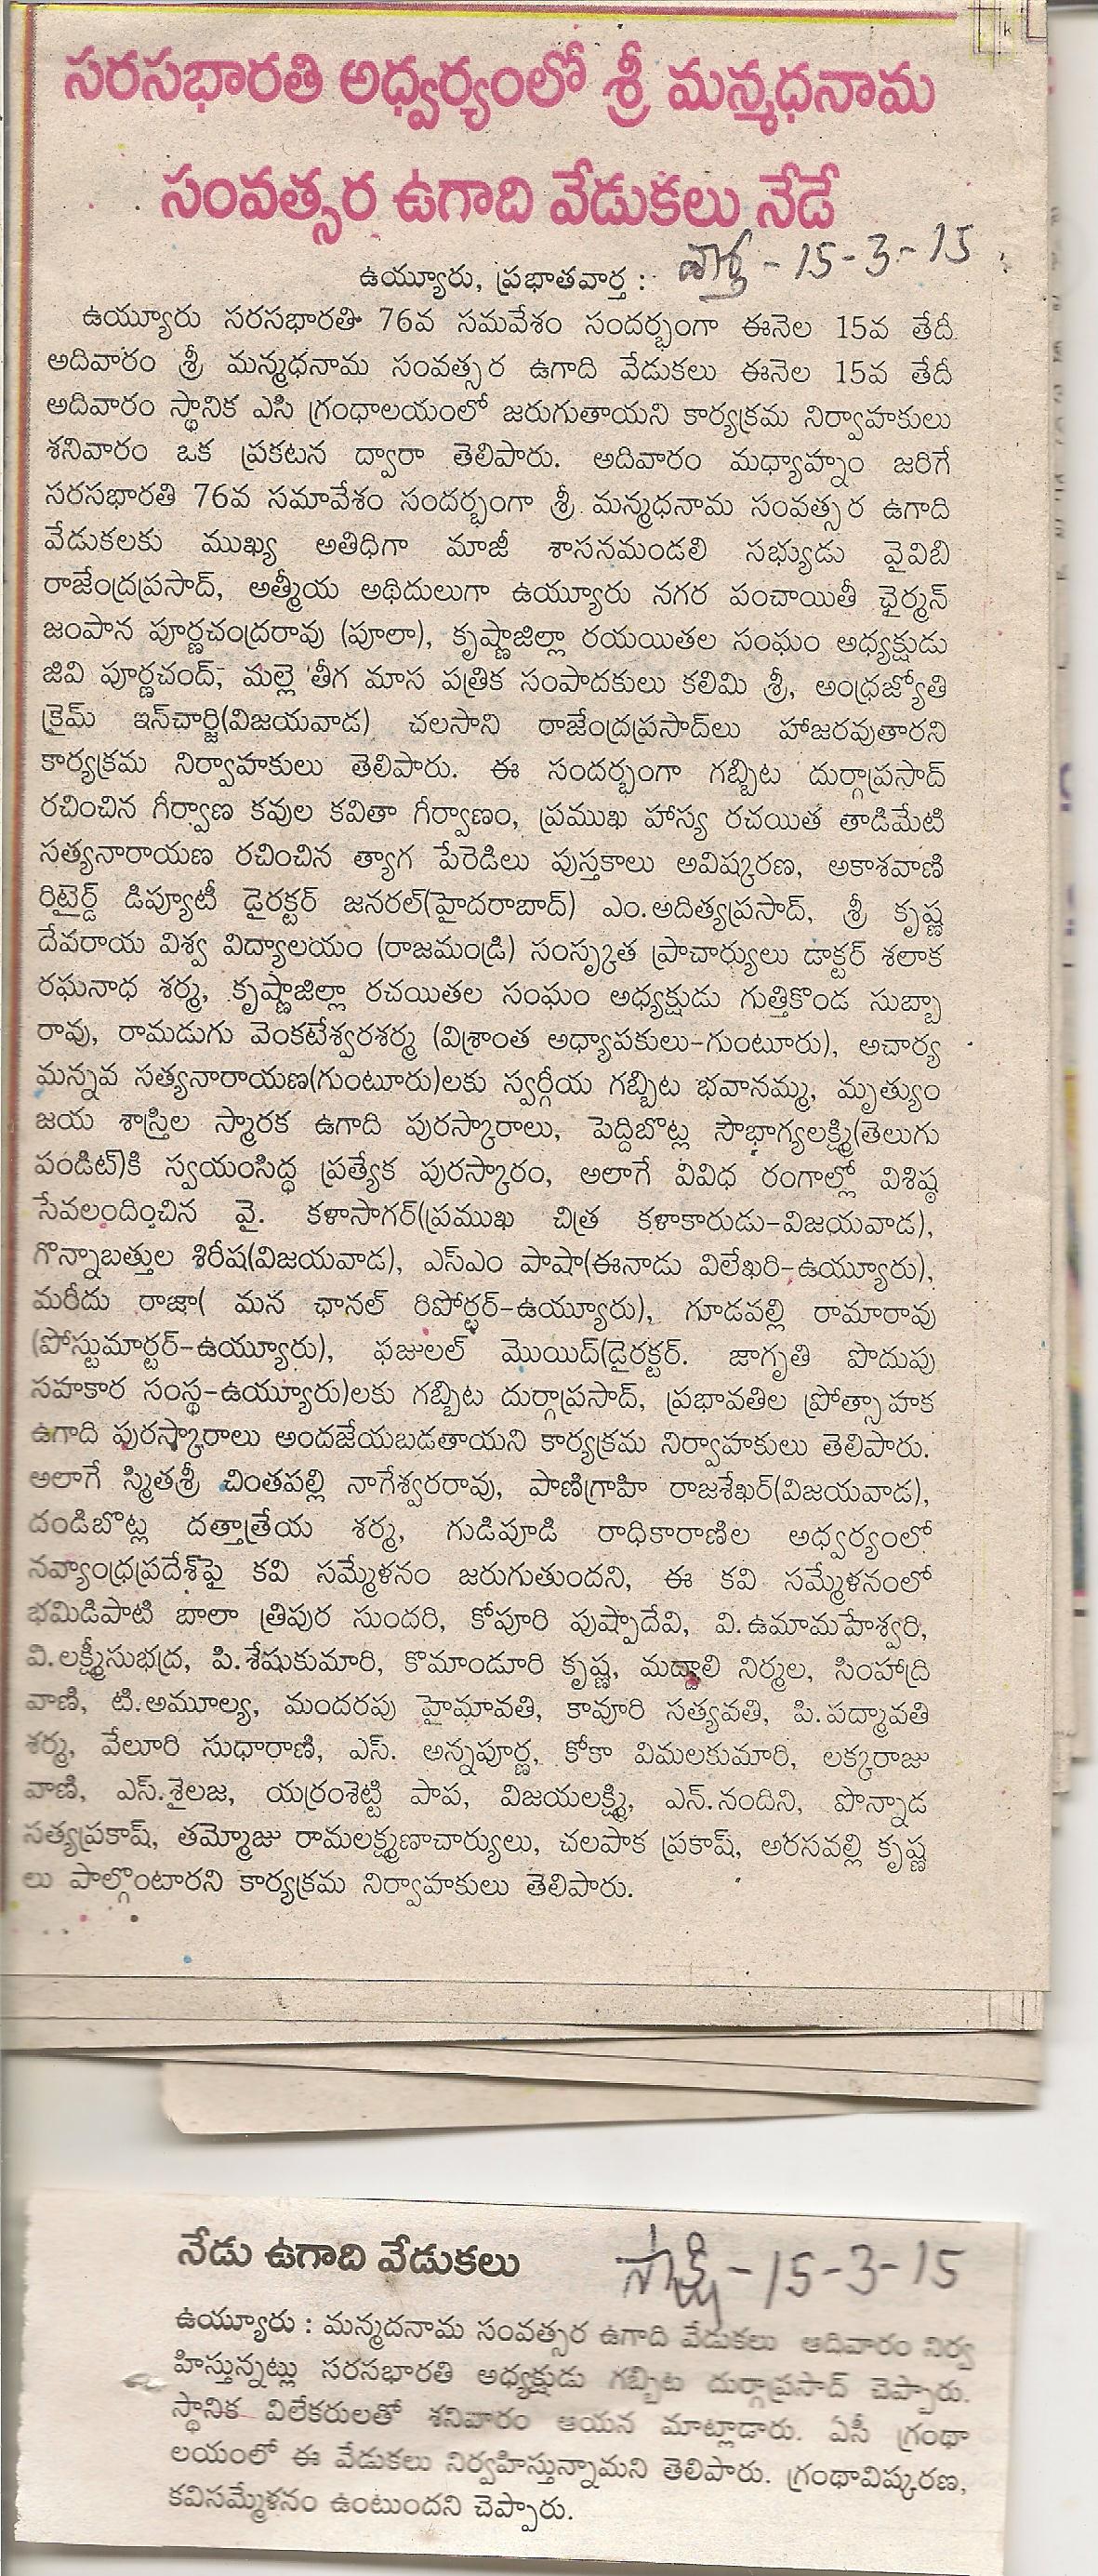 సరసభారతి అధ్వర్యంలో శ్రీ మన్మధనామ
సంవత్సర ఉగాది వేడుకలు నేడే
వార్త - 15-3-15
ఉయ్యూరు, ప్రభాతవార్త :
ఉయ్యూరు సరసభారతి 76వ సమవేశం సందర్భంగా ఈనెల 15వ తేదీ
అదివారం శ్రీ మన్మధనామ సంవత్సర ఉగాది వేడుకలు ఈనెల 15వ తేదీ
అదివారం స్థానిక ఎసి గ్రంధాలయంలో జరుగుతాయని కార్యక్రమ నిర్వాహకులు
శనివారం ఒక ప్రకటన ద్వారా తెలిపారు. అదివారం మధ్యాహ్నం జరిగే
సరసభారతి 76వ సమావేశం సందర్భంగా శ్రీ మన్మధనామ సంవత్సర ఉగాది
వేడుకలకు ముఖ్య అతిధిగా మాజీ శాసనమండలి సభ్యుడు వైవిబి
రాజేంద్రప్రసాద్, అత్మీయ అథిదులుగా ఉయ్యూరు నగర పంచాయితీ ఛైర్మన్
జంపాన పూర్ణచంద్రరావు (పూలా), కృష్ణాజిల్లా రయయితల సంఘం అధ్యక్షుడు
జివి పూర్ణచంద్, మల్లె తీగ మాస పత్రిక సంపాదకులు కలిమి శ్రీ, అంధ్రజ్యోతి
క్రైమ్ ఇన్‌చార్జి(విజయవాడ) చలసాని రాజేంద్రప్రసాద్‌లు హాజరవుతారని
కార్యక్రమ నిర్వాహకులు తెలిపారు. ఈ సందర్భంగా గబ్బిట దుర్గాప్రసాద్
రచించిన గీర్వాణ కవుల కవితా గీర్వాణం, ప్రముఖ హాస్య రచయిత తాడిమేటి
సత్యనారాయణ రచించిన త్యాగ పేరెడిలు పుస్తకాలు అవిష్కరణ, అకాశవాణి
రిటైర్డ్ డిప్యూటీ డైరక్టర్ జనరల్(హైదరాబాద్) ఎం.అదిత్యప్రసాద్, శ్రీ కృష్ణ
దేవరాయ విశ్వ విద్యాలయం (రాజమండ్రి) సంస్కృత ప్రాచార్యులు డాక్టర్ శలాక
రఘనాధ శర్మ, కృష్ణాజిల్లా రచయితల సంఘం అధ్యక్షుడు గుత్తికొండ సుబ్బా
రావు, రామడుగు వెంకటేశ్వరశర్మ (విశ్రాంత అధ్యాపకులు-గుంటూరు), అచార్య
మన్నవ సత్యనారాయణ(గుంటూరు)లకు స్వర్గీయ గబ్బిట భవానమ్మ, మృత్యుం
జయ శాస్త్రిల స్మారక ఉగాది పురస్కారాలు, పెద్దిబొట్ల సౌభాగ్యలక్ష్మి(తెలుగు
పండిట్)కి స్వయంసిద్ధ ప్రత్యేక పురస్కారం, అలాగే వివిధ రంగాల్లో విశిష్ఠ
సేవలందించిన వై. కళాసాగర్(ప్రముఖ చిత్ర కళాకారుడు-విజయవాడ),
గొన్నాబత్తుల శిరీష(విజయవాడ), ఎస్ఎం పాషా(ఈనాడు విలేఖరి-ఉయ్యూరు),
మరీదు రాజా( మన ఛానల్ రిపోర్టర్-ఉయ్యూరు), గూడవల్లి రామారావు
(పోస్టుమార్టర్-ఉయ్యూరు), ఫజులల్ మొయిద్(డైరక్టర్. జాగృతి పొదుపు
సహకార సంస్థ-ఉయ్యూరు)లకు గబ్బిట దుర్గాప్రసాద్, ప్రభావతిల ప్రోత్సాహక
ఉగాది పురస్కారాలు అందజేయబడతాయని కార్యక్రమ నిర్వాహకులు తెలిపారు.
అలాగే స్మితశ్రీ చింతపల్లి నాగేశ్వరరావు, పాణిగ్రాహి రాజశేఖర్(విజయవాడ),
దండిబొట్ల దత్తాత్రేయ శర్మ, గుడిపూడి రాధికారాణిల అధ్వర్యంలో
నవ్యాంధ్రప్రదేశ్‌పై కవి సమ్మేళనం జరుగుతుందని, ఈ కవి సమ్మేళనంలో
భమిడిపాటి బాలా త్రిపుర సుందరి, కోపూరి పుష్పాదేవి, వి.ఉమామహేశ్వరి,
వి.లక్ష్మీసుభద్ర, పి.శేషుకుమారి, కొమాండూరి కృష్ణ, మద్దాలి నిర్మల, సింహాద్రి
వాణి, టి.అమూల్య, మందరపు హైమావతి, కావూరి సత్యవతి, పి.పద్మావతి
శర్మ, వేలూరి సుధారాణి, ఎస్. అన్నపూర్ణ, కోకా విమలకుమారి, లక్కరాజు
వాణి, ఎస్.శైలజ, యర్రంశెట్టి పాప, విజయలక్ష్మి, ఎన్.నందిని, పొన్నాడ
సత్యప్రకాష్, తమ్మోజు రామలక్ష్మణాచార్యులు, చలపాక ప్రకాష్, అరసవల్లి కృష్ణ
లు పాల్గొంటారని కార్యక్రమ నిర్వాహకులు తెలిపారు.
నేడు ఉగాది వేడుకలు
సాక్షి - 15-3-15
ఉయ్యూరు : మన్మదనామ సంవత్సర ఉగాది వేడుకలు ఆదివారం నిర్వ
హిస్తున్నట్లు సరసభారతి అధ్యక్షుడు గబ్బిట దుర్గాప్రసాద్ చెప్పారు.
స్థానిక విలేకరులతో శనివారం ఆయన మాట్లాడారు. ఏసీ గ్రంథా
లయంలో ఈ వేడుకలు నిర్వహిస్తున్నామని తెలిపారు. గ్రంథావిష్కరణ,
కవిసమ్మేళనం ఉంటుందని చెప్పారు.